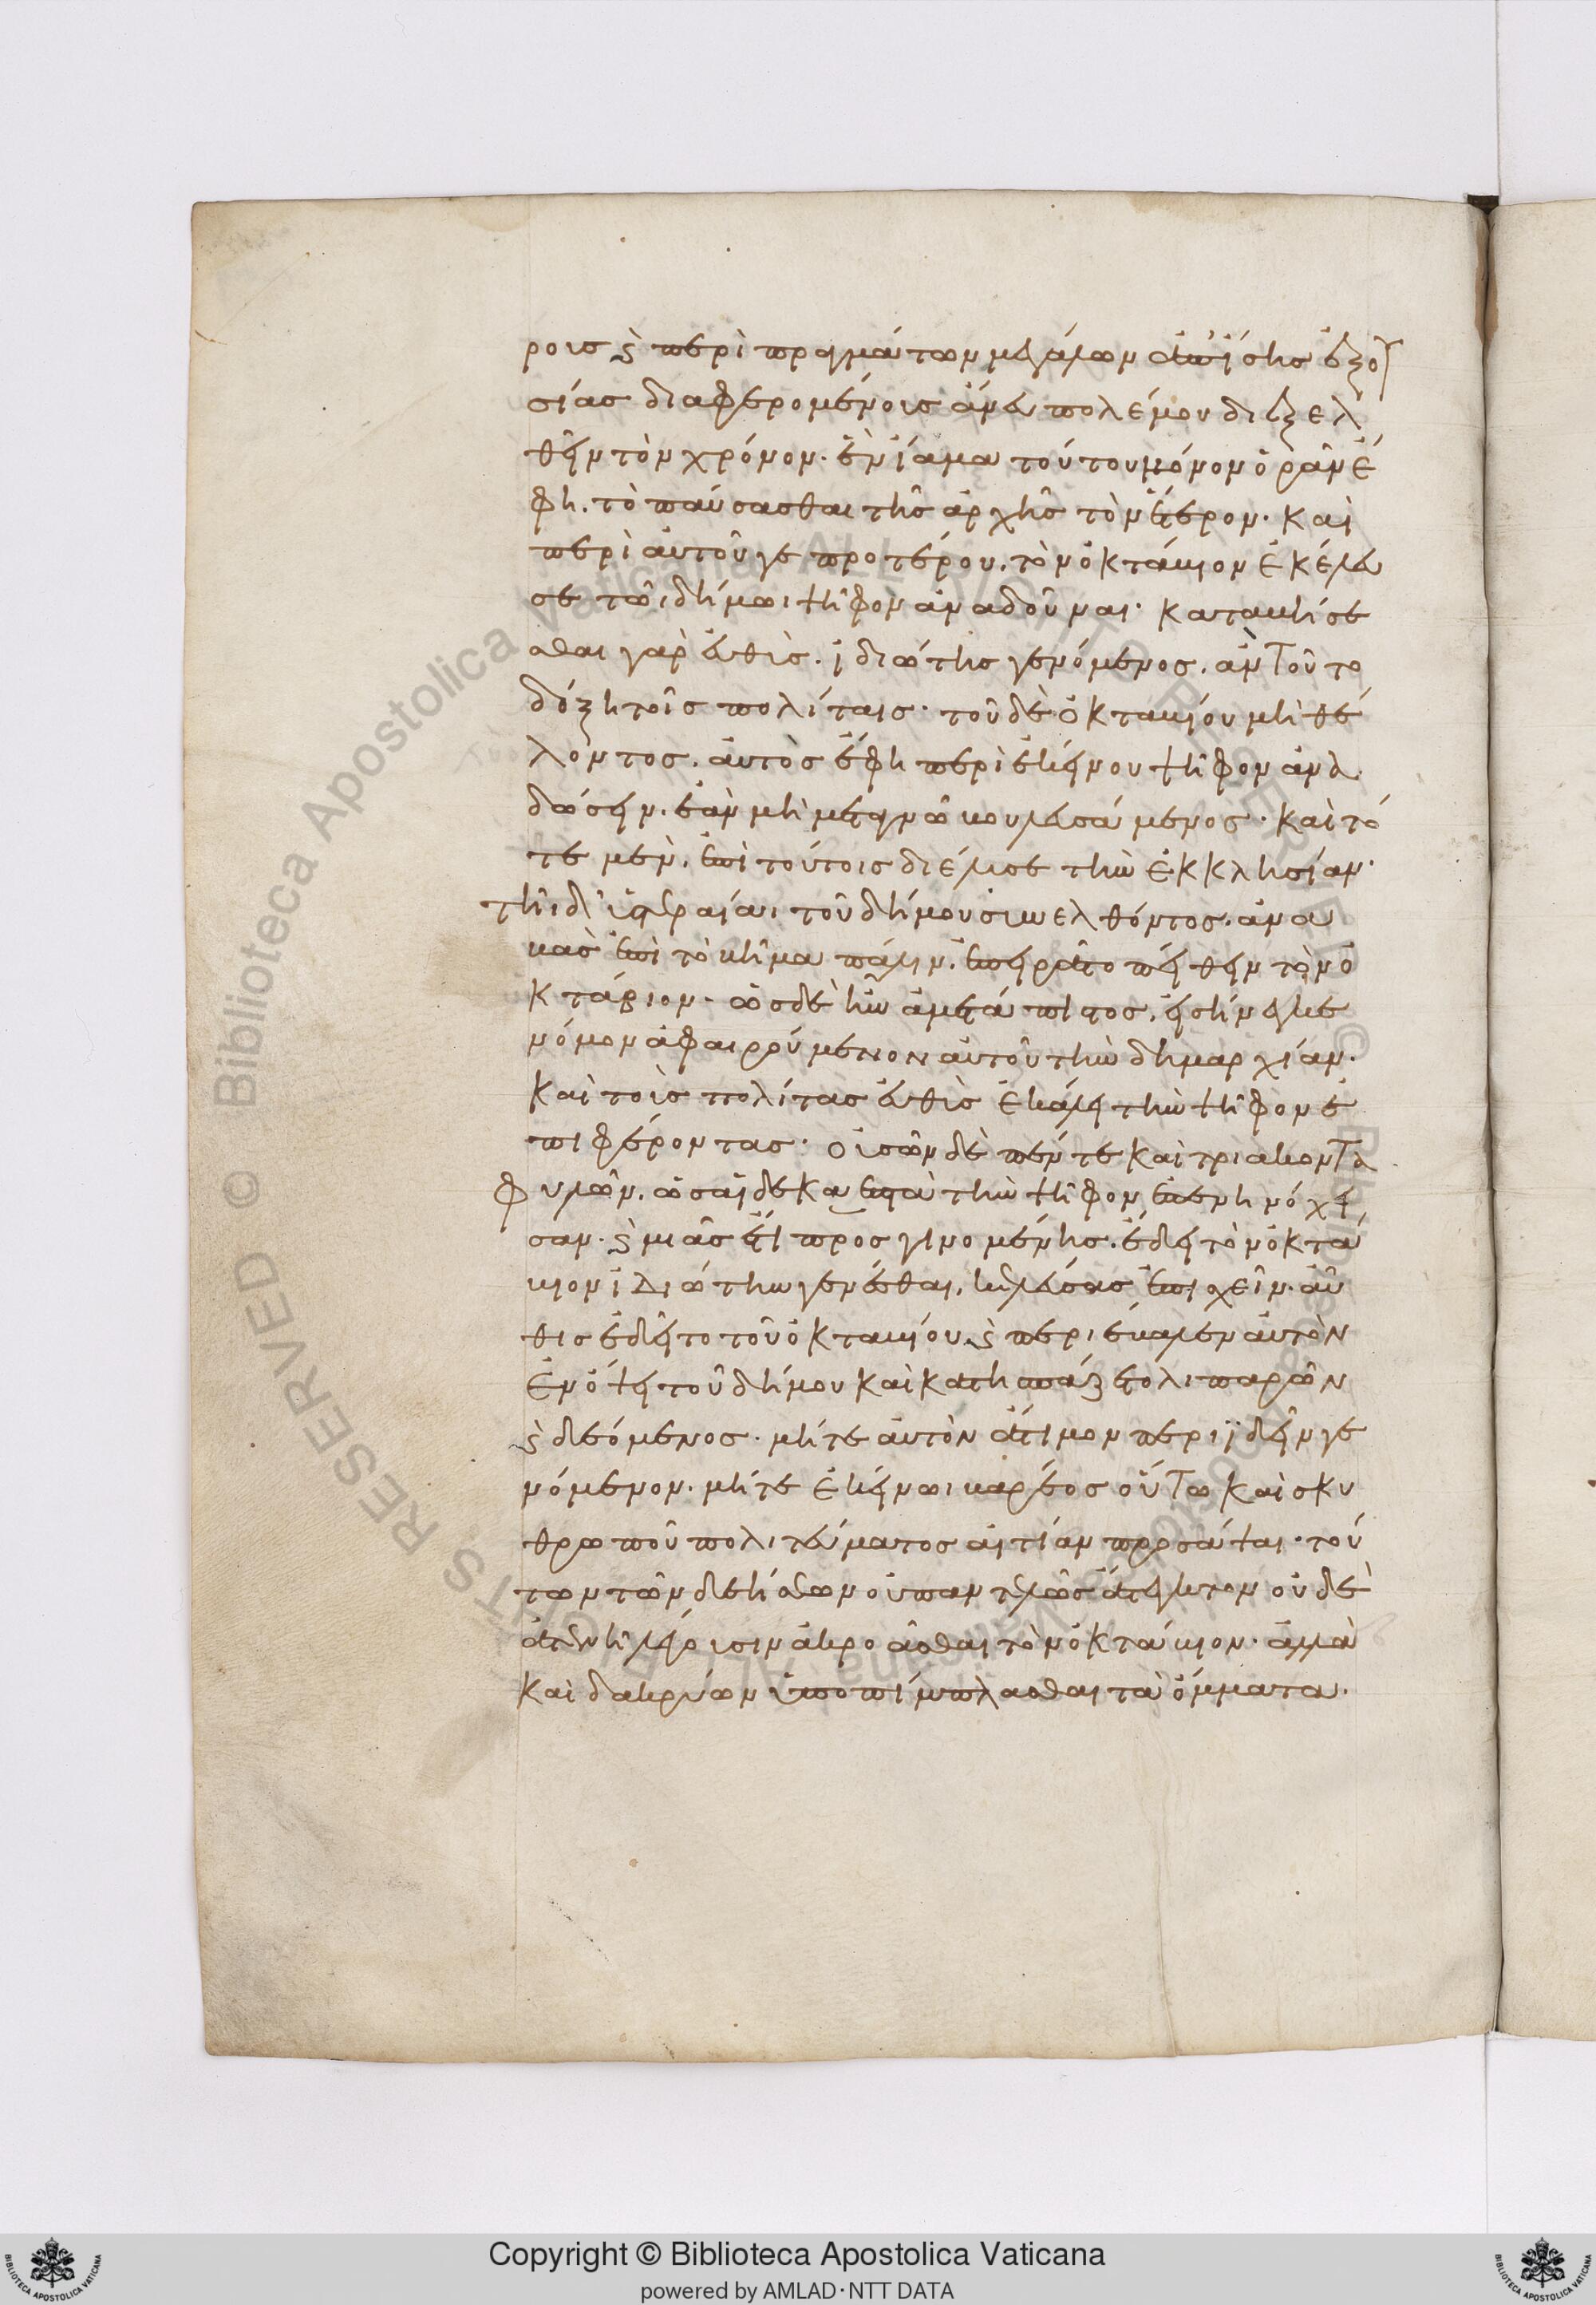 ροις ϛ̀ περὶ πραγμάτων μεγάλων ἀπ' ἴσης ἐξου
σίας διαφερομένοις ἄνευ πολέμου διεξελ
θεῖν τὸν χρόνον. ἓν ἴαμα τούτου μόνον ὁρᾶν ἔ
φη. τὸ παύσασθαι τῆς ἀρχῆς τὸν ἕτερον. καὶ
περὶ αὐτοῦ γε προτέρου. τὸν ὀκτάυιον ἐκέλευ
σε τῶι δήμωι ψῆφον ἀναδοῦναι. καταβήσε
σθαι γὰρ εὐθὺς. ἰδιώτης γενόμενος. ἂν τοῦτο
δόξη τοῖς πολίταις. τοῦ δὲ ὀκταυίου μὴ θέ
λοντος. αὐτὸς ἔφη περὶ ἐκείνου ψῆφον ἀνα
δώσειν. ἐὰν μὴ μεταγνῶ βουλευσάμενος. καὶ τό
τε μὲν. ἐπὶ τούτοις διέλυσε τὴν ἐκκλησίαν.
τῆι δ' ὑστεραίαι τοῦ δήμου συνελθόντος. ἀνα
βὰς ἐπὶ τὸ βῆμα πάλιν. ἐπειρᾶτο πείθειν τὸν ὀ
κτάβιον. ὡς δὲ ἦν ἀμετάπειστος. εἰσήνεγκε
νόμον ἀφαιρούμενον αὐτοῦ τὴν δημαρχίαν.
καὶ τοὺς πολίτας εὐθὺς ἐκάλει τὴν ψῆφον ἐ
πιφέροντας. οὐσῶν δὲ πέντε καὶ τριάκοντα
φυλῶν. ὡς αἱ δεκα επτὰ τὴν ψῆφον ἐπενηνόχει
σαν. ϛ̀ μιᾶς ἔτι προσγινομένης. ἔδει τὸν ὀκτά
υιον ἰδιώτην γενέσθαι, κελεύσας ἐπισχεῖν. αὖ
θις ἐδεῖτο τοῦ ὀκταυίου ϛ̀ περιέβαλεν αὐτὸν
ἐν ὄψει τοῦ δήμου καὶ κατησπάζετο λιπαρῶν
ϛ̀ δεόμενος. μήτε αὐτὸν ἄτιμον περιϊδεῖν γε
νόμενον. μήτε ἐκείνωι βαρέος οὕτω καὶ σκυ
θρωποῦ πολιτεύματος αἰτίαν προσάψαι. τού
των τῶν δεήσεων οὐ παντελῶς ἄτεγκτον οὐδὲ
ἀτενῆ λέγουσιν ἀκροᾶσθαι τὸν ὀκτάυιον. ἀλλὰ
καὶ δακρύων ὑποπίμπλασθαι τὰ ὄμματα.